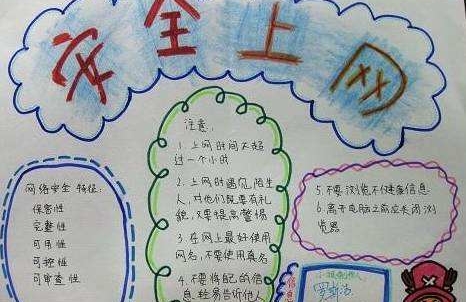 安全上网
网络安全 特征：
保密性
完整性
可用性
可控性
可审查性
注意：
1.上网时间不超
过一个小时
2.上网时遇见陌生
人,对他们既要有礼
貌,又要提高警惕
3.在网上最好使用
网名,不要使用真名
4.不要将自己的信
息轻易告诉他人
5.不要浏览不健康信息
6.离开电脑之前应关闭浏
览器